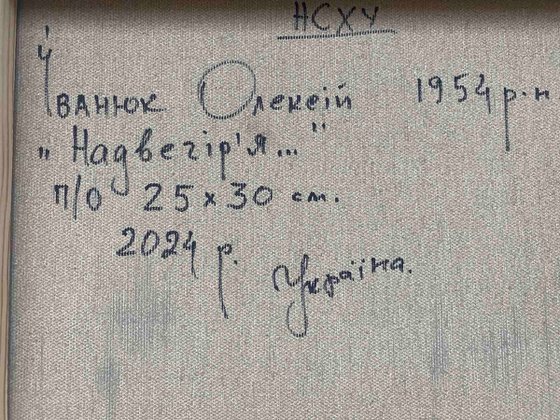 НСХУ
Іванюк Олексій 1954 р.н
„Надвечір'я..."
п/о 25х30 см.
2024 р. Україна.